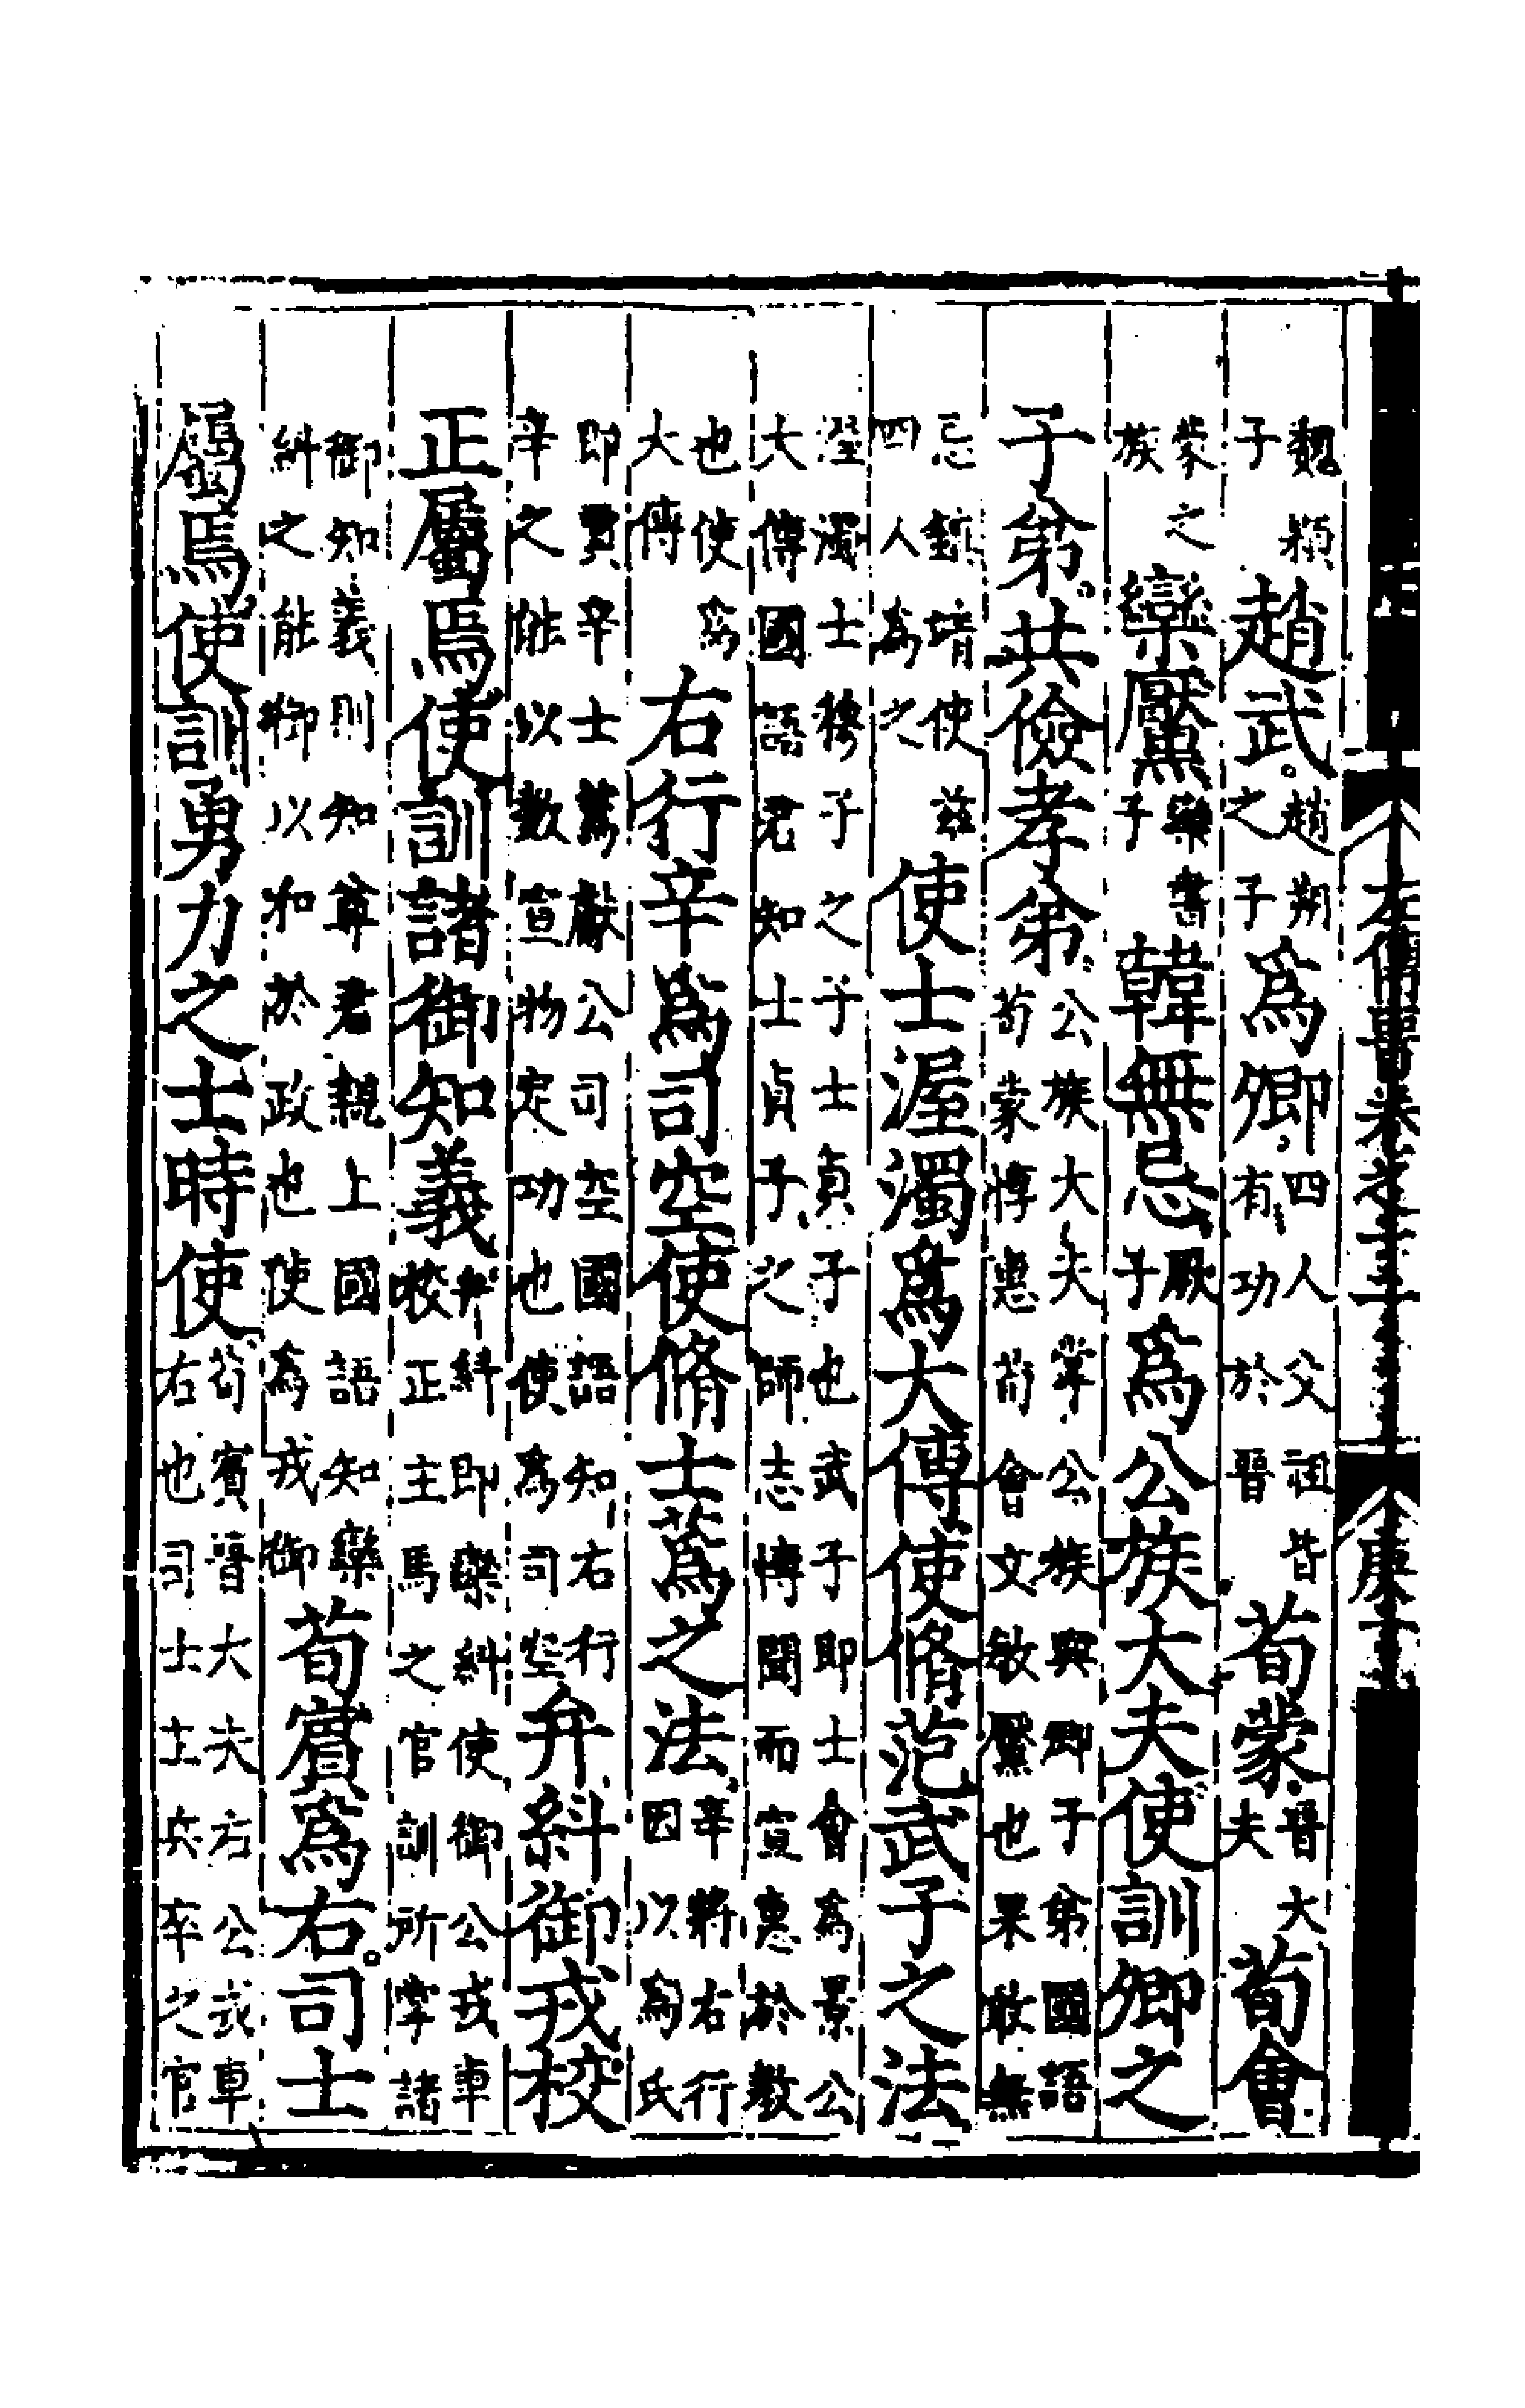 左傳晉卷之二十
魏顆子趙武。趙朔之子爲卿、四人父祖皆有功於晉荀蒙。晉大夫荀會
蒙之族欒黶欒書子韓無忌厥子爲公族大夫使訓卿之
子弟。共儉孝弟。公族大夫掌公族與卿子弟國語荀蒙惇惠荀會文敏黶也果敢無
忌鎮靖使茲四人為之使士渥濁爲大傅使脩范武子之法
渥濁士穆子之子士貞子也武子即士會為景公大傅國語君知士貞子之師志博聞而宣惠於教
也使為大傅右行辛爲司空使脩士蒍之法、辛將右行因以為氏
即賈辛士蒍獻公司空國語知右行辛之能以數宣物定功也使為司空弁糾御戎校
正屬焉使訓諸御知義弁糾即欒糾使御公戎車校正主馬之官訓所掌諸
御知義則知尊君親上國語知欒糾之能御以和於政也使為戎御荀賓爲右。司士
屬焉使訓勇力之士時使荀賓晉大夫右公戎車右也司士主兵卒之官